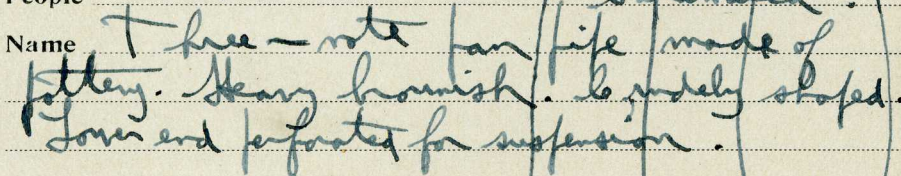 People
Name Three-note pan pipe made of
pottery. Heavy brownish. Crudely shaped.
Lower end perforated for suspension.